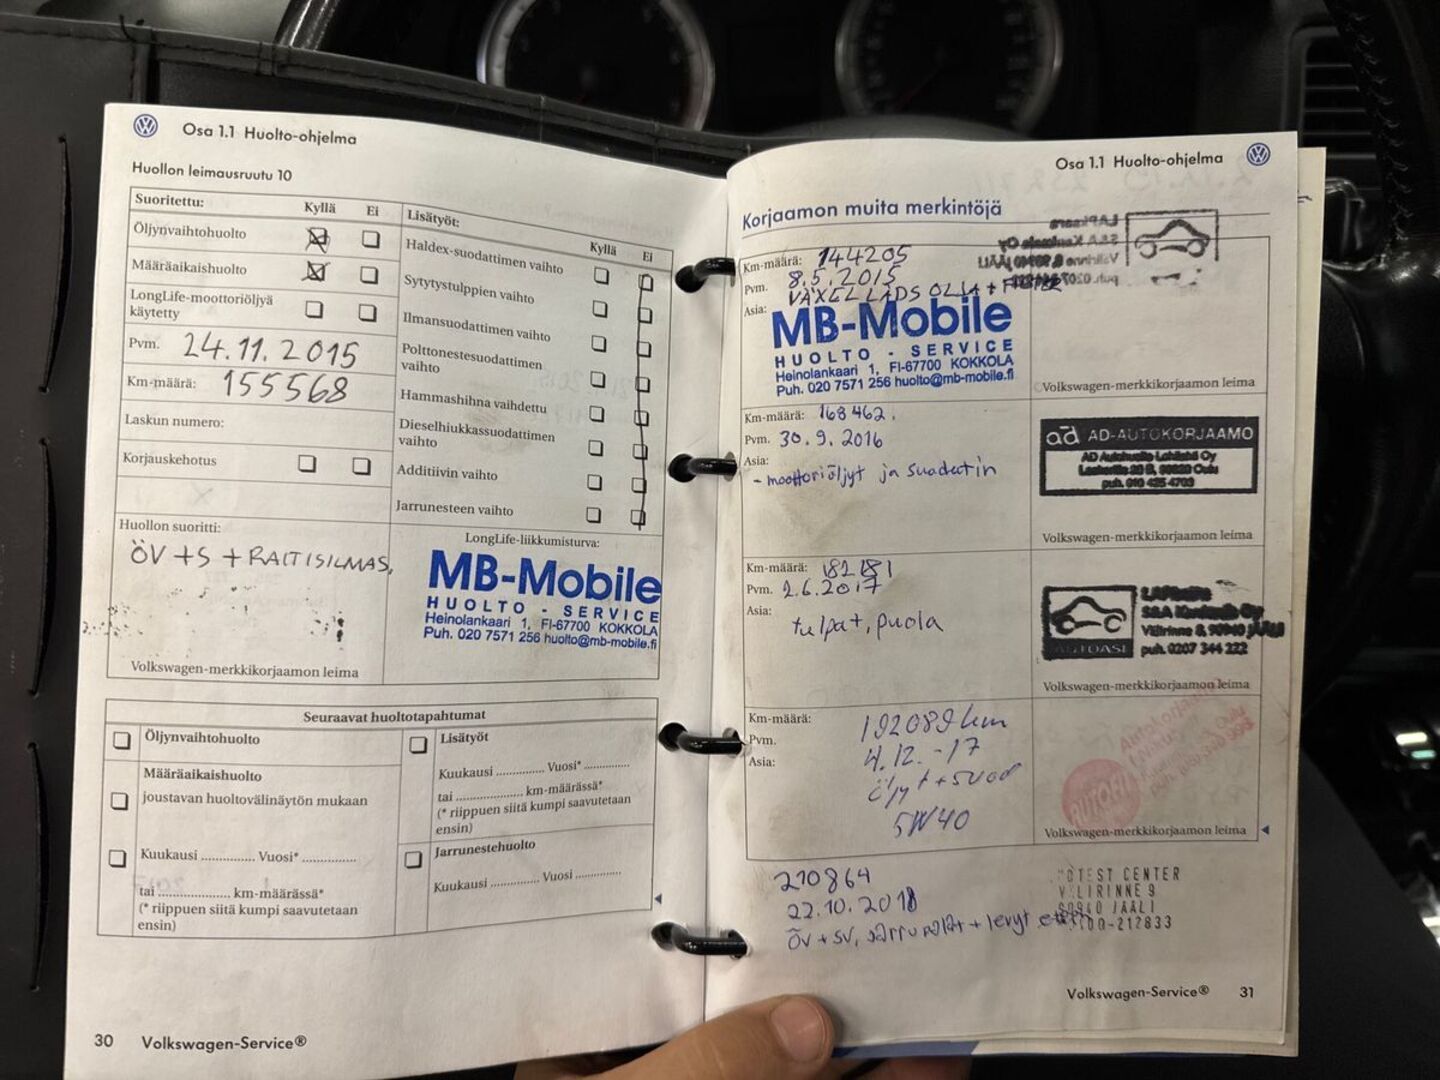 Osa 1.1 Huolto-ohjelma
Huollon leimausruutu 10
Suoritettu: Kyllä Ei
Öljynvaihtohuolto
Määräaikaishuolto
LongLife-moottoriöljyä
käytetty
Pvm. 24.11.2015
Km-määrä: 155568
Laskun numero:
Korjauskehotus
Huollon suoritti:
ÖV +S + RAITISILMAS,
Volkswagen-merkkikorjaamon leima
Lisätyöt: Kyllä Ei
Haldex-suodattimen vaihto
Sytytystulppien vaihto
Ilmansuodattimen vaihto
Polttonestesuodattimen
vaihto
Hammashihna vaihdettu
Dieselhiukkassuodattimen
vaihto
Additiivin vaihto
Jarrunesteen vaihto
LongLife-liikkumisturva:
MB-Mobile
HUOLTO - SERVICE
Heinolankaari 1, FI-67700 KOKKOLA
Puh. 020 7571 256 huolto@mb-mobile.fi
Seuraavat huoltotapahtumat
Öljynvaihtohuolto
Määräaikaishuolto
joustavan huoltovälinäytön mukaan
Kuukausi ............... Vuosi* ...............
tai .................... km-määrässä*
(* riippuen siitä kumpi saavutetaan
ensin)
Lisätyöt
Kuukausi .............. Vuosi* ..............
tai .................... km-määrässä*
(* riippuen siitä kumpi saavutetaan
ensin)
Jarrunestehuolto
Kuukausi .............. Vuosi ..............
30 Volkswagen-Service®
Osa 1.1 Huolto-ohjelma
Korjaamon muita merkintöjä
Km-määrä: 144205
Pvm. 8.5.2015
Asia: VÄXELLÅDS OLJA + FILTER
MB-Mobile
HUOLTO - SERVICE
Heinolankaari 1, FI-67700 KOKKOLA
Puh. 020 7571 256 huolto@mb-mobile.fi
Volkswagen-merkkikorjaamon leima
Km-määrä: 168462.
Pvm. 30.9.2016
Asia:
- moottoriöljyt ja suodatin
ad AD-AUTOKORJAAMO
AD Autohuolto Lohilahti Oy
20 B, Oulu
puh. 010 425 4703
Volkswagen-merkkikorjaamon leima
Km-määrä: 182181
Pvm. 2.6.2017
Asia:
tulpat, puola
S&A Oy
Välirinne 8, 90940 JÄÄLI
puh. 0207 344 222
AUTOASI
Volkswagen-merkkikorjaamon leima
Km-määrä: 192089 km
Pvm. 4.12.-17
Asia: öljyt + suod
5W40
Volkswagen-merkkikorjaamon leima
210864
22.10.2018
ÖV + SV, jarrupalat + levyt
TEST CENTER
VÄLIRINNE 9
90940 JÄÄLI
-212833
Volkswagen-Service® 31